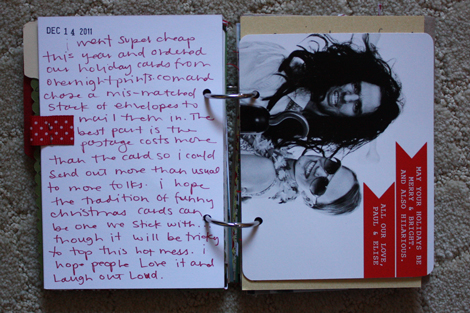 DEC 14 2011
i went super cheap
this year and ordered
our holiday cards from
overnightprints.com and
chose a mis-matched
stack of envelopes to
mail them in. The
best part is the
postage costs more
than the card so i could
send out more than usual
to more folks. i hope
the tradition of funny
christmas cards can
be one we stick with.
though it will be tricky
to top this hot mess. i
hope people Love it and
Laugh out Loud.
MAY YOUR HOLIDAYS BE
MERRY & BRIGHT.
AND ALSO HILARIOUS.
ALL OUR LOVE,
PAUL & ELISE